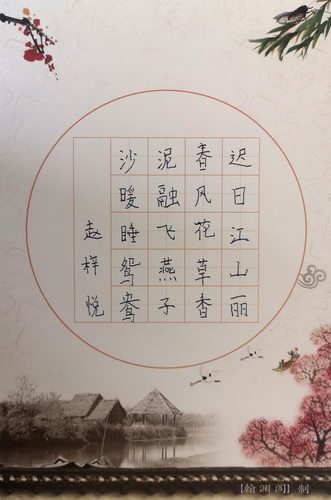 迟日江山丽
春风花草香
泥融飞燕子
沙暖睡鸳鸯
赵梓悦
【翰渊阁】制